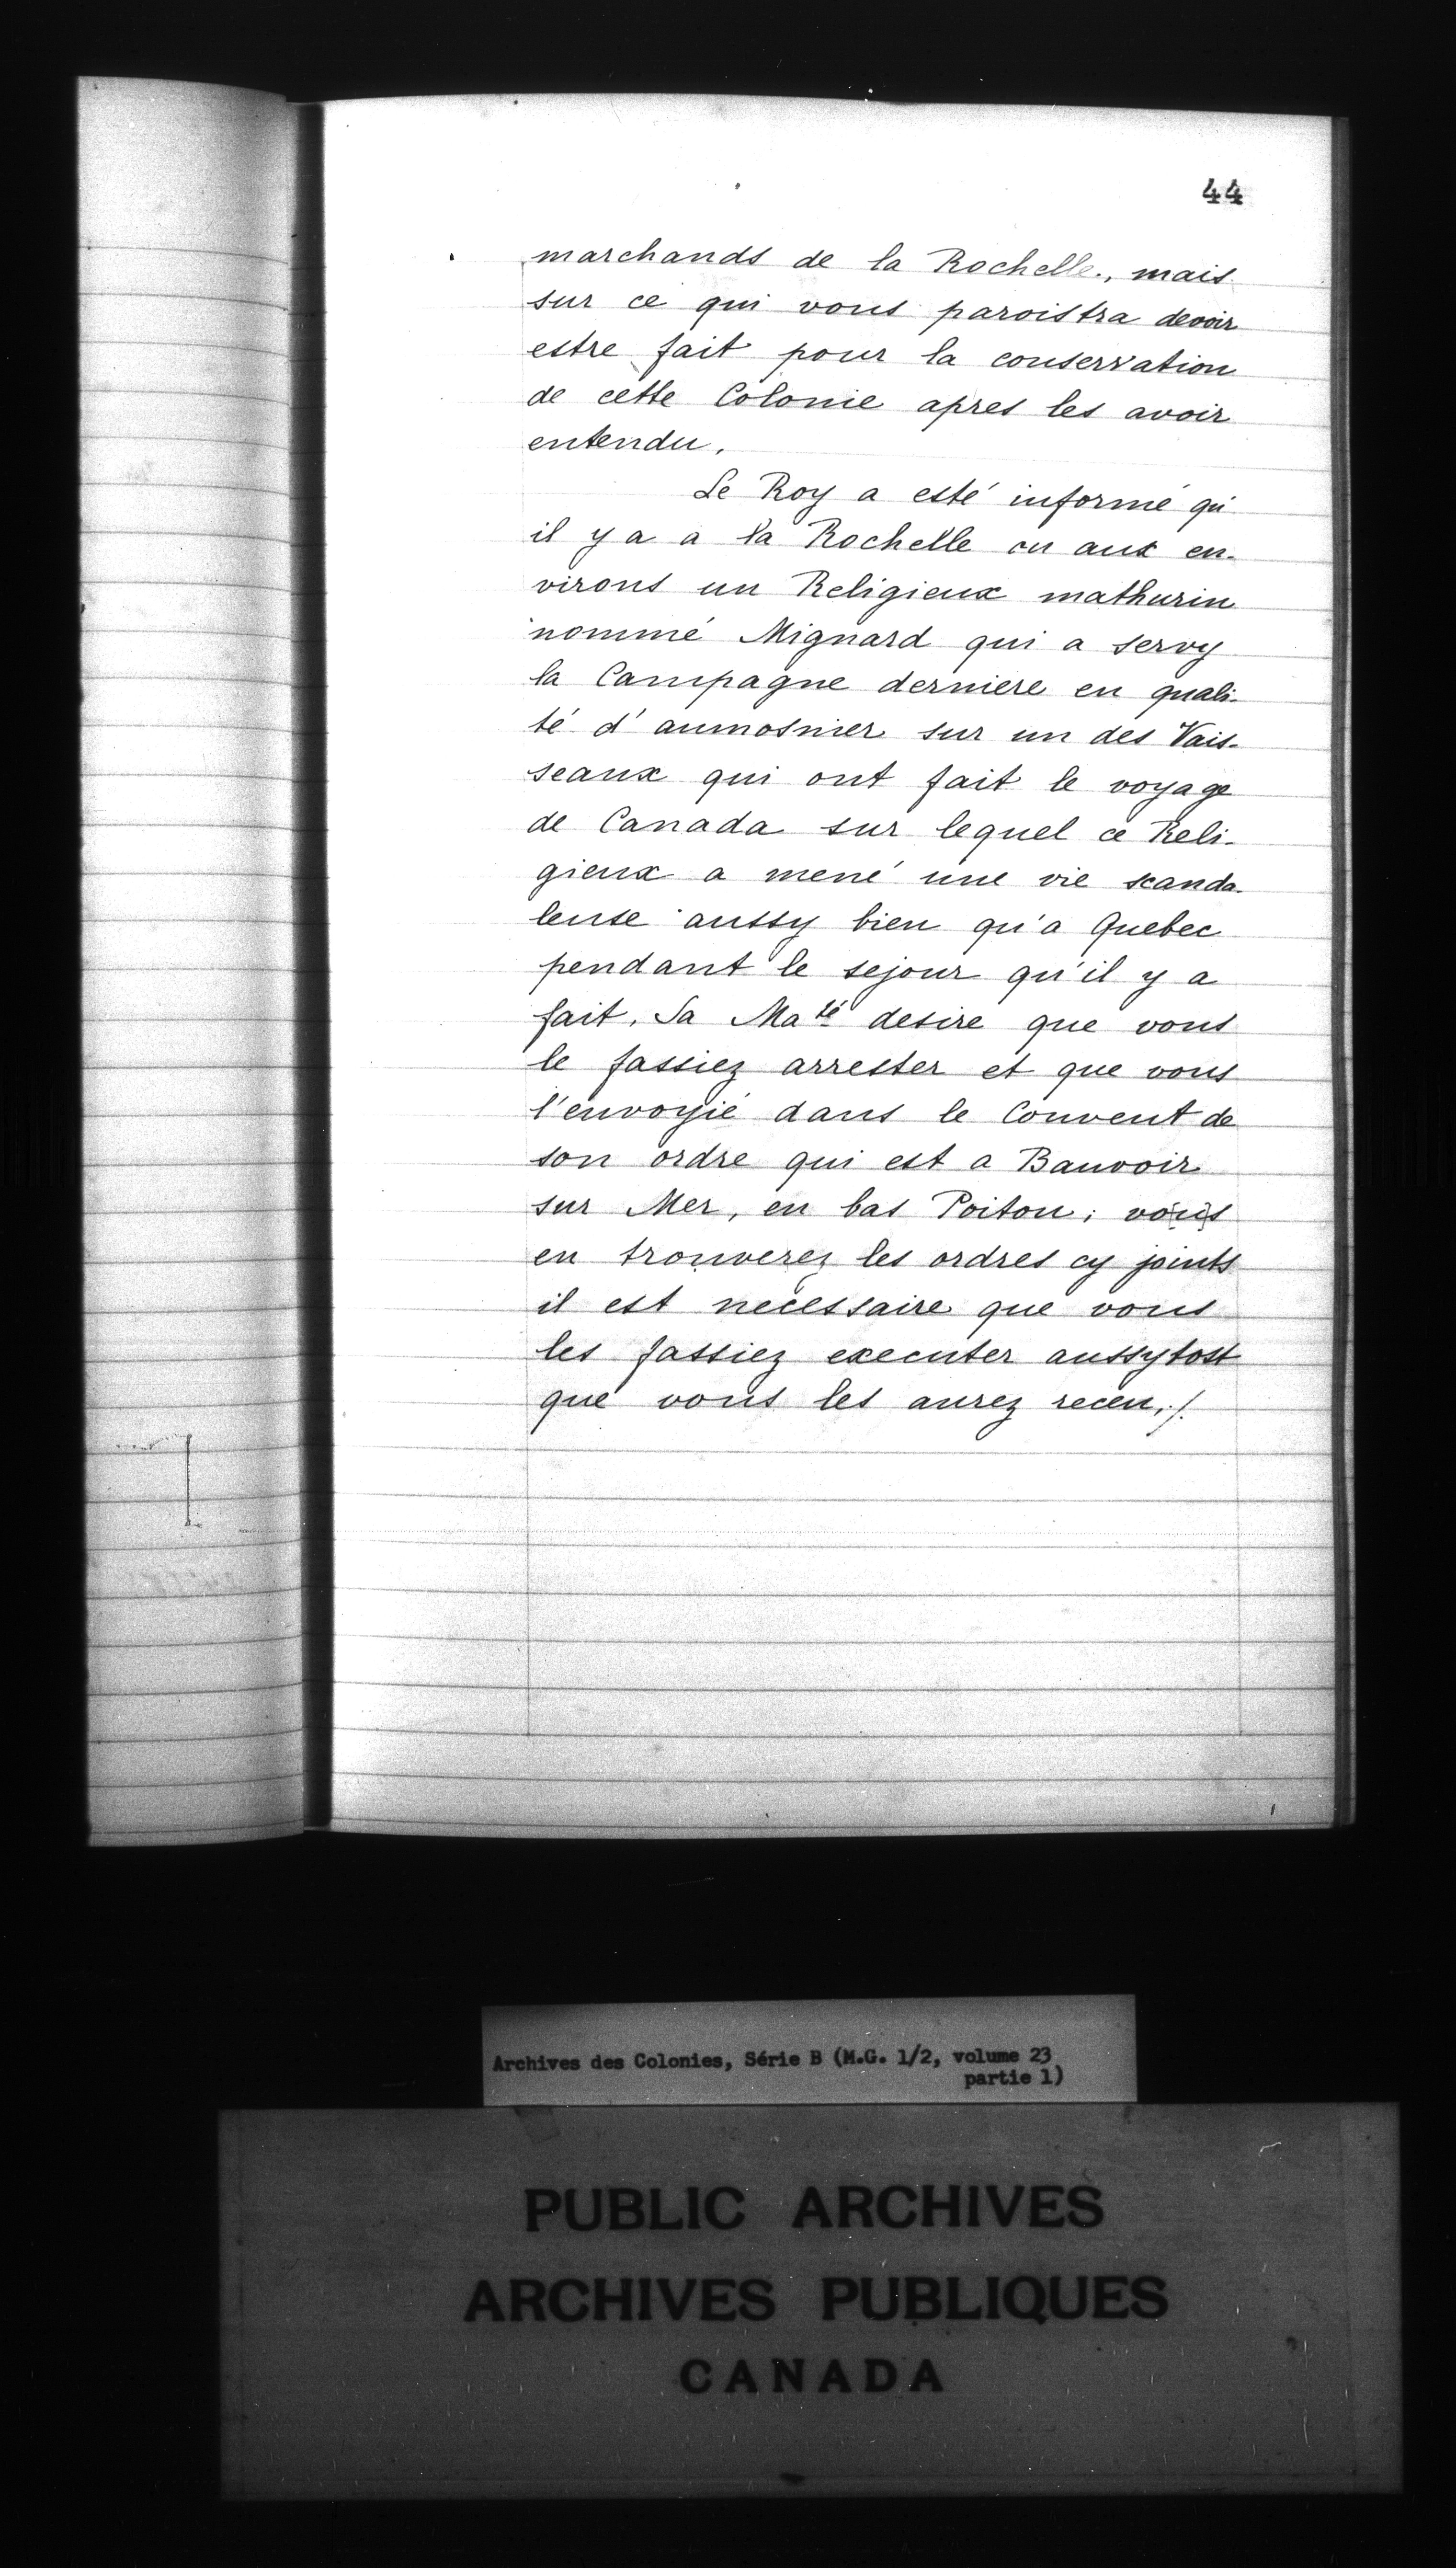 44
marchands de la Rochelle, mais
sur ce qui vous paroistra devoir
estre fait pour la conservation
de cette Colonie apres les avoir
entendu.
Le Roy a esté informé qu'
il y a a la Rochelle ou aux en-
virons un Religieux mathurin
nommé Mignard qui a servy
la Campagne derniere en quali-
té d'aumosnier sur un des Vais-
seaux qui ont fait le voyage
de Canada sur lequel ce Reli-
gieux a mené une vie scanda-
leuse aussy bien qu'a Quebec
pendant le sejour qu'il y a
fait. Sa Maté desire que vous
le fassiez arrester et que vous
l'envoyié dans le Couvent de
son ordre qui est a Bauvoir
sur Mer, en bas Poitou; vous
en trouverez les ordres cy joints
il est necessaire que vous
les fassiez executer aussytost
que vous les aurez receu./.
Archives des Colonies, Série B (M.G. 1/2, volume 23
partie 1)
PUBLIC ARCHIVES
ARCHIVES PUBLIQUES
CANADA